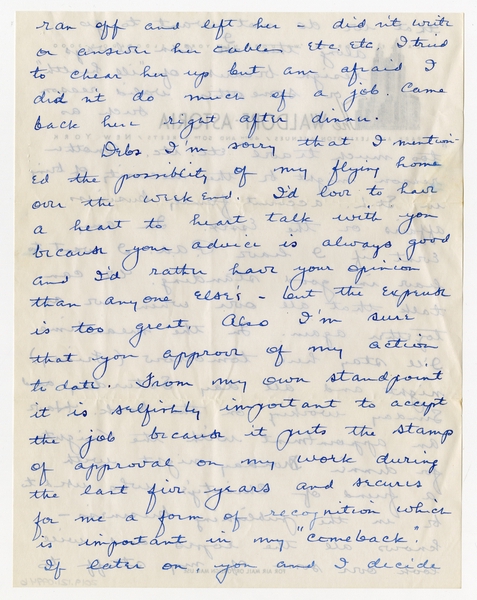 ran off and left her - did n't write
or answer her cables etc. etc. I tried
to cheer her up but am afraid I
did n't do much of a job. Came
back here right after dinner.
Debs I'm sorry that I mention-
ed the possibility of my flying home
over the week end. I'd love to have
a heart to heart talk with you
because your advice is always good
and I'd rather have your opinion
than anyone elses - but the expense
is too great. Also I'm sure
that you approve of my action
to date. From my own standpoint
it is selfishly important to accept
the job because it puts the stamp
of approval on my work during
the last five years and secures
for me a form of recognition which
is important in my "comeback".
If later on, you and I decide